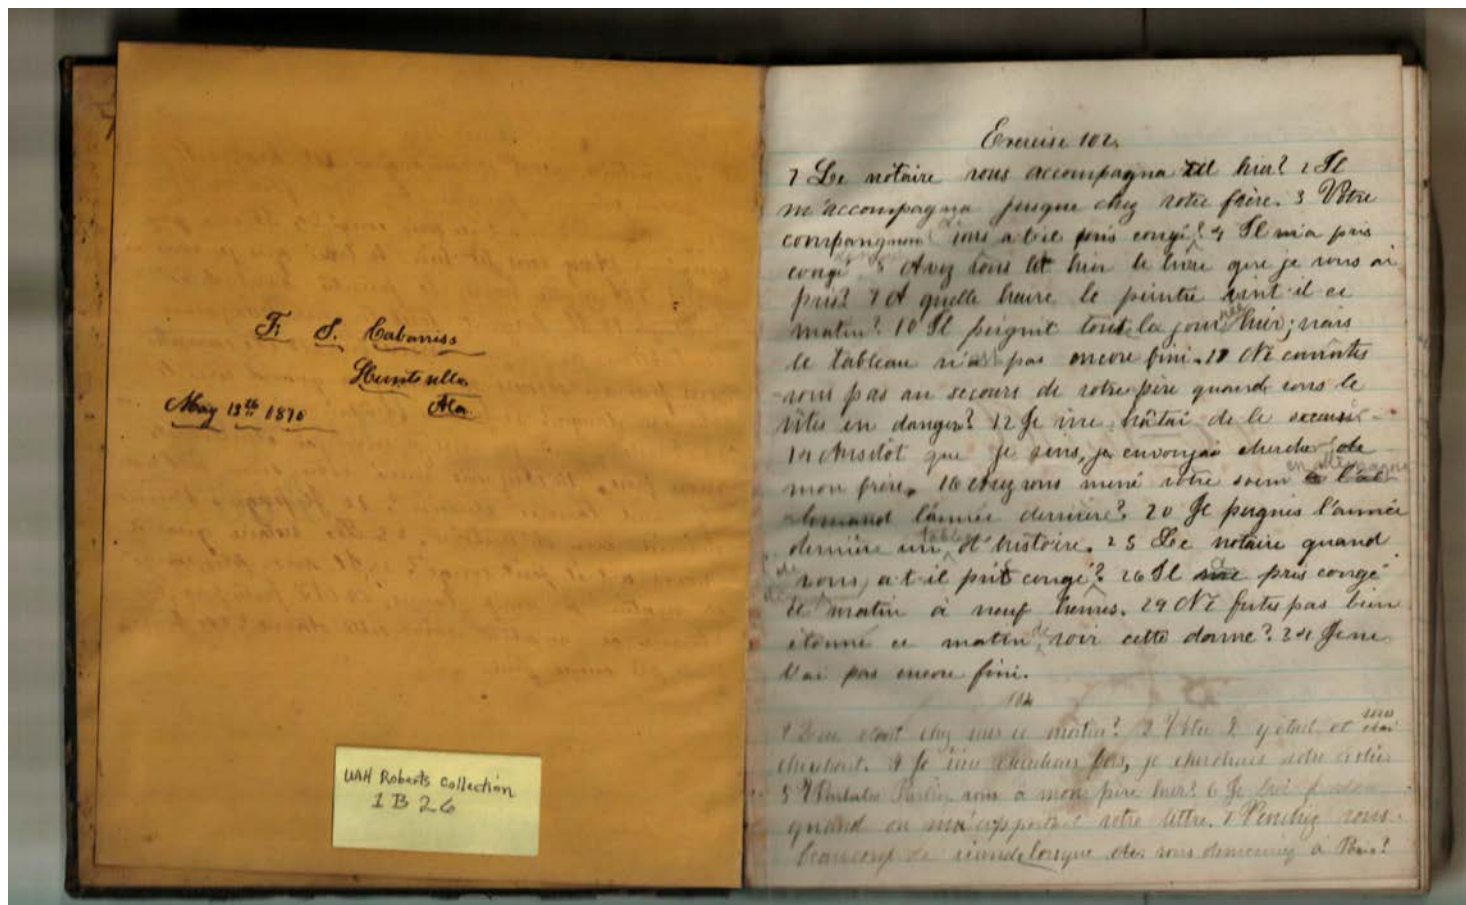 F. S. Cabaniss
Huntsville
May 13th 1870 Ala.
UAH Roberts Collection
1 B 26
Exercise 102.
1 Le notaire vous accompagna til hier? 2 Il
m'accompagna jusque chez votre frère. 3 Votre
vous a t il pris congé? 4 Il m'a pris
congé 5 Avez vous lit hier le livre que je vous ai
pris? 7 A quelle heure le peintre vint-il ce
matin? 10 Il peignit tout la journée hier; mais
le tableau n'est pas encore fini. 11 Ne
vous pas au secours de votre père quand vous le
vites en danger? 12 Je me hâtai de le
14 Ausitôt que je chercher
mon frère. 16 Avez vous mené votre en allemagne
l'année dernière? 20 Je peignis l'année
dernière un table d'histoire. 25 Le notaire quand
vous a-t-il prit congé? 26 Il pris congé
matin à neuf heures. 29 Ne futes pas bien
étonné ce matin de voir cette dame? 34 Je ne
l'ai pas encore fini.
104
chez ce matin? 2 y était et vous
cherchait. 4 Je fois, je cherchais votre
5 vous à mon père hier? 6 Je
quand on m'apporta votre lettre. 7 vous
beaucoup de lorsque vous demeuriez à Paris?